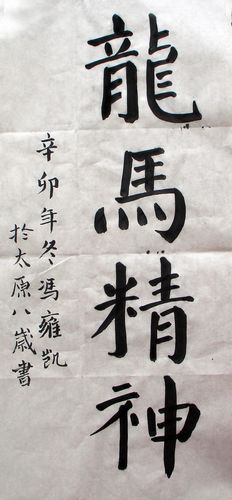 龍馬精神
辛卯年冬馮雍凱
於太原八歲書